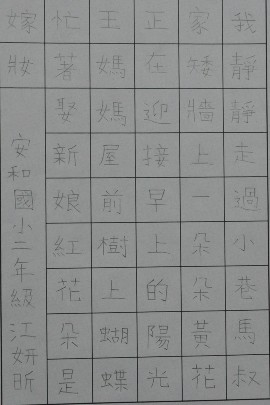 我靜靜走過小巷馬叔
家矮牆上一朵朵黃花
正在迎接早上的陽光
王媽媽屋前樹上蝴蝶
忙著娶新娘紅花朵是
嫁妝
安和國小二年級江妍昕